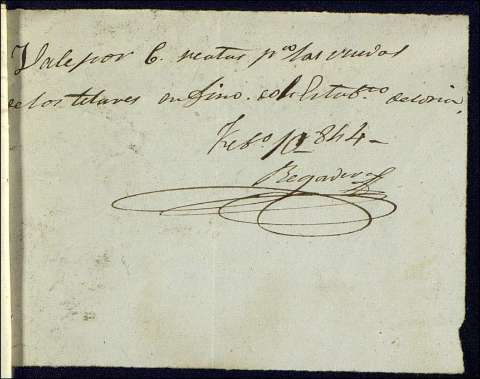 Vale por 6. reatas p.ª las ruedas
de los telares en fino. del Estab.co
Feb.o 10 844-
Regadera